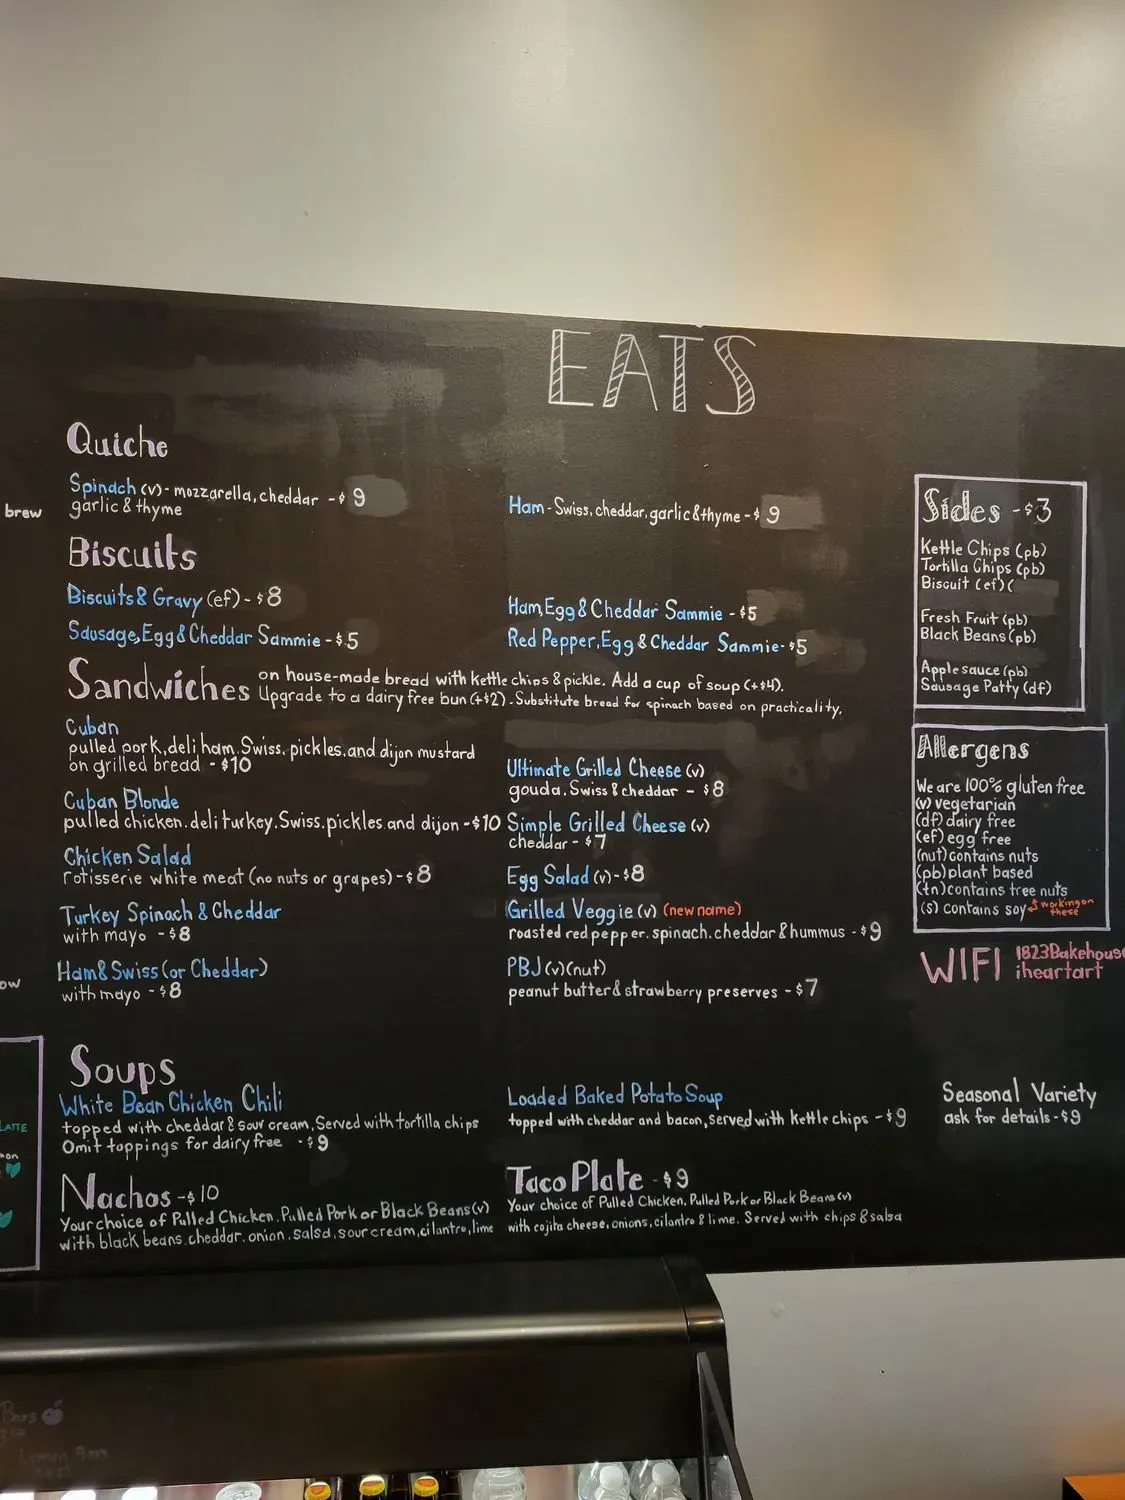 EATS
Quiche
Spinach (v) - mozzarella, cheddar - $9
garlic & thyme
Ham - Swiss, cheddar, garlic & thyme - $9
brew
Biscuits
Biscuits & Gravy (ef) - $8
Sausage, Egg & Cheddar Sammie - $5
Ham, Egg & Cheddar Sammie - $5
Red Pepper, Egg & Cheddar Sammie - $5
Sandwiches
on house-made bread with kettle chips & pickle. Add a cup of soup (+$4).
Upgrade to a dairy free bun (+$2). Substitute bread for spinach based on practicality.
Cuban
pulled pork, deli ham, Swiss, pickles, and dijon mustard
on grilled bread - $10
Cuban Blonde
pulled chicken, deli turkey, Swiss, pickles, and dijon - $10
Chicken Salad
rotisserie white meat (no nuts or grapes) - $8
Turkey Spinach & Cheddar
with mayo - $8
Ham & Swiss (or Cheddar)
with mayo - $8
Ultimate Grilled Cheese (v)
gouda, Swiss & cheddar - $8
Simple Grilled Cheese (v)
cheddar - $7
Egg Salad (v) - $8
Grilled Veggie (v) (new name)
roasted red pepper, spinach, cheddar & hummus - $9
PBJ (v) (nut)
peanut butter & strawberry preserves - $7
ow
Soups
White Bean Chicken Chili
topped with cheddar & sour cream, Served with tortilla chips
Omit toppings for dairy free - $9
Loaded Baked Potato Soup
topped with cheddar and bacon, served with kettle chips - $9
Seasonal Variety
ask for details - $9
Nachos - $10
Your choice of Pulled Chicken, Pulled Pork or Black Beans (v)
with black beans, cheddar, onion, salsa, sour cream, cilantro, lime
Taco Plate - $9
Your choice of Pulled Chicken, Pulled Pork or Black Beans (v)
with cojita cheese, onions, cilantro & lime. Served with chips & salsa
Sides - $3
Kettle Chips (pb)
Tortilla Chips (pb)
Biscuit (ef) (
Fresh Fruit (pb)
Black Beans (pb)
Applesauce (pb)
Sausage Patty (df)
Allergens
We are 100% gluten free
(v) vegetarian
(df) dairy free
(ef) egg free
(nut) contains nuts
(pb) plant based
(tn) contains tree nuts
(s) contains soy working on
these
WIFI
1823Bakehouse
iheartart
LATTE
mon
Bars
Lemon Bars